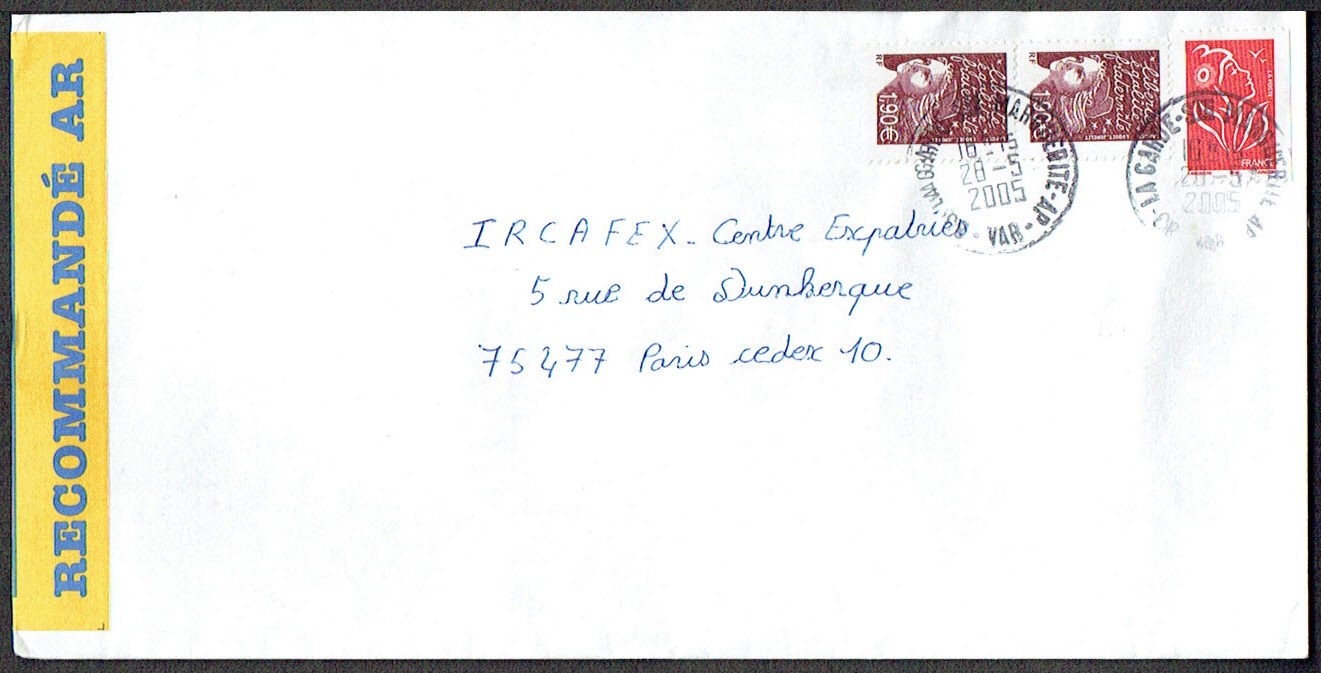 RECOMMANDÉ AR
RF
1.90€
liberté
égalité
fraternité
RF
1.90€
liberté
égalité
fraternité
LA POSTE
FRANCE
MARGUERITE-AP
28-5
2005
VAR
83-LA GARDE-STE MARGUERITE AP
28-5
2005
VAR
IRCAFEX - Centre Expatriés
5 rue de Dunkerque
75477 Paris cedex 10.